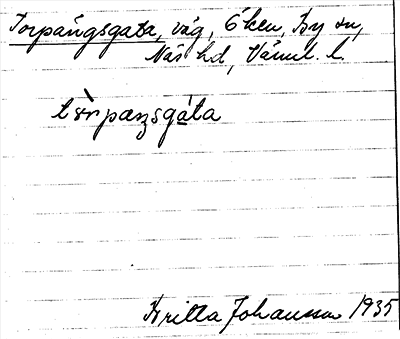 Torpängsgata, väg, Öken, By sn,
Näs hd, Värml. l.
tòrpæŋsgáta
Britta Johansson 1935